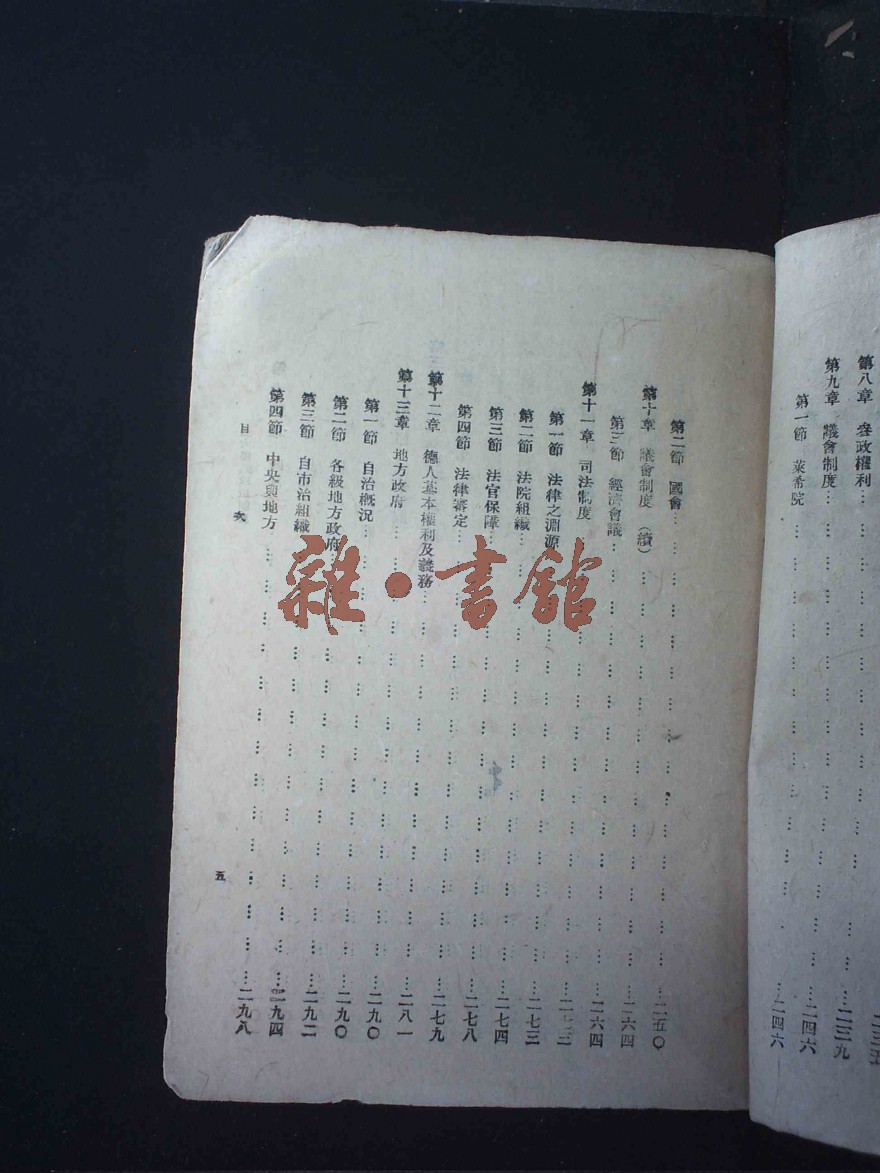 二三五
第八章 參政權利……二三九
第九章 議會制度……二四六
第一節 萊希院……二四六
第二節 國會……二五〇
第十章 議會制度(續)……二六四
節 經濟會議……二六四
第十一章 司法制度……
第一節 法律之淵源……二七三
第二節 法院組織……二七四
第三節 法官保障……二七八
第四節 法律審定……二七九
第十二章 德人基本權利及義務……二八一
第十三章 地方政府……二九〇
第一節 自治概況……二九〇
第二節 各級地方政府……二九二
第三節 自市治組織……二九四
第四節 中央與地方……二九八
目 次
五
雜·書館